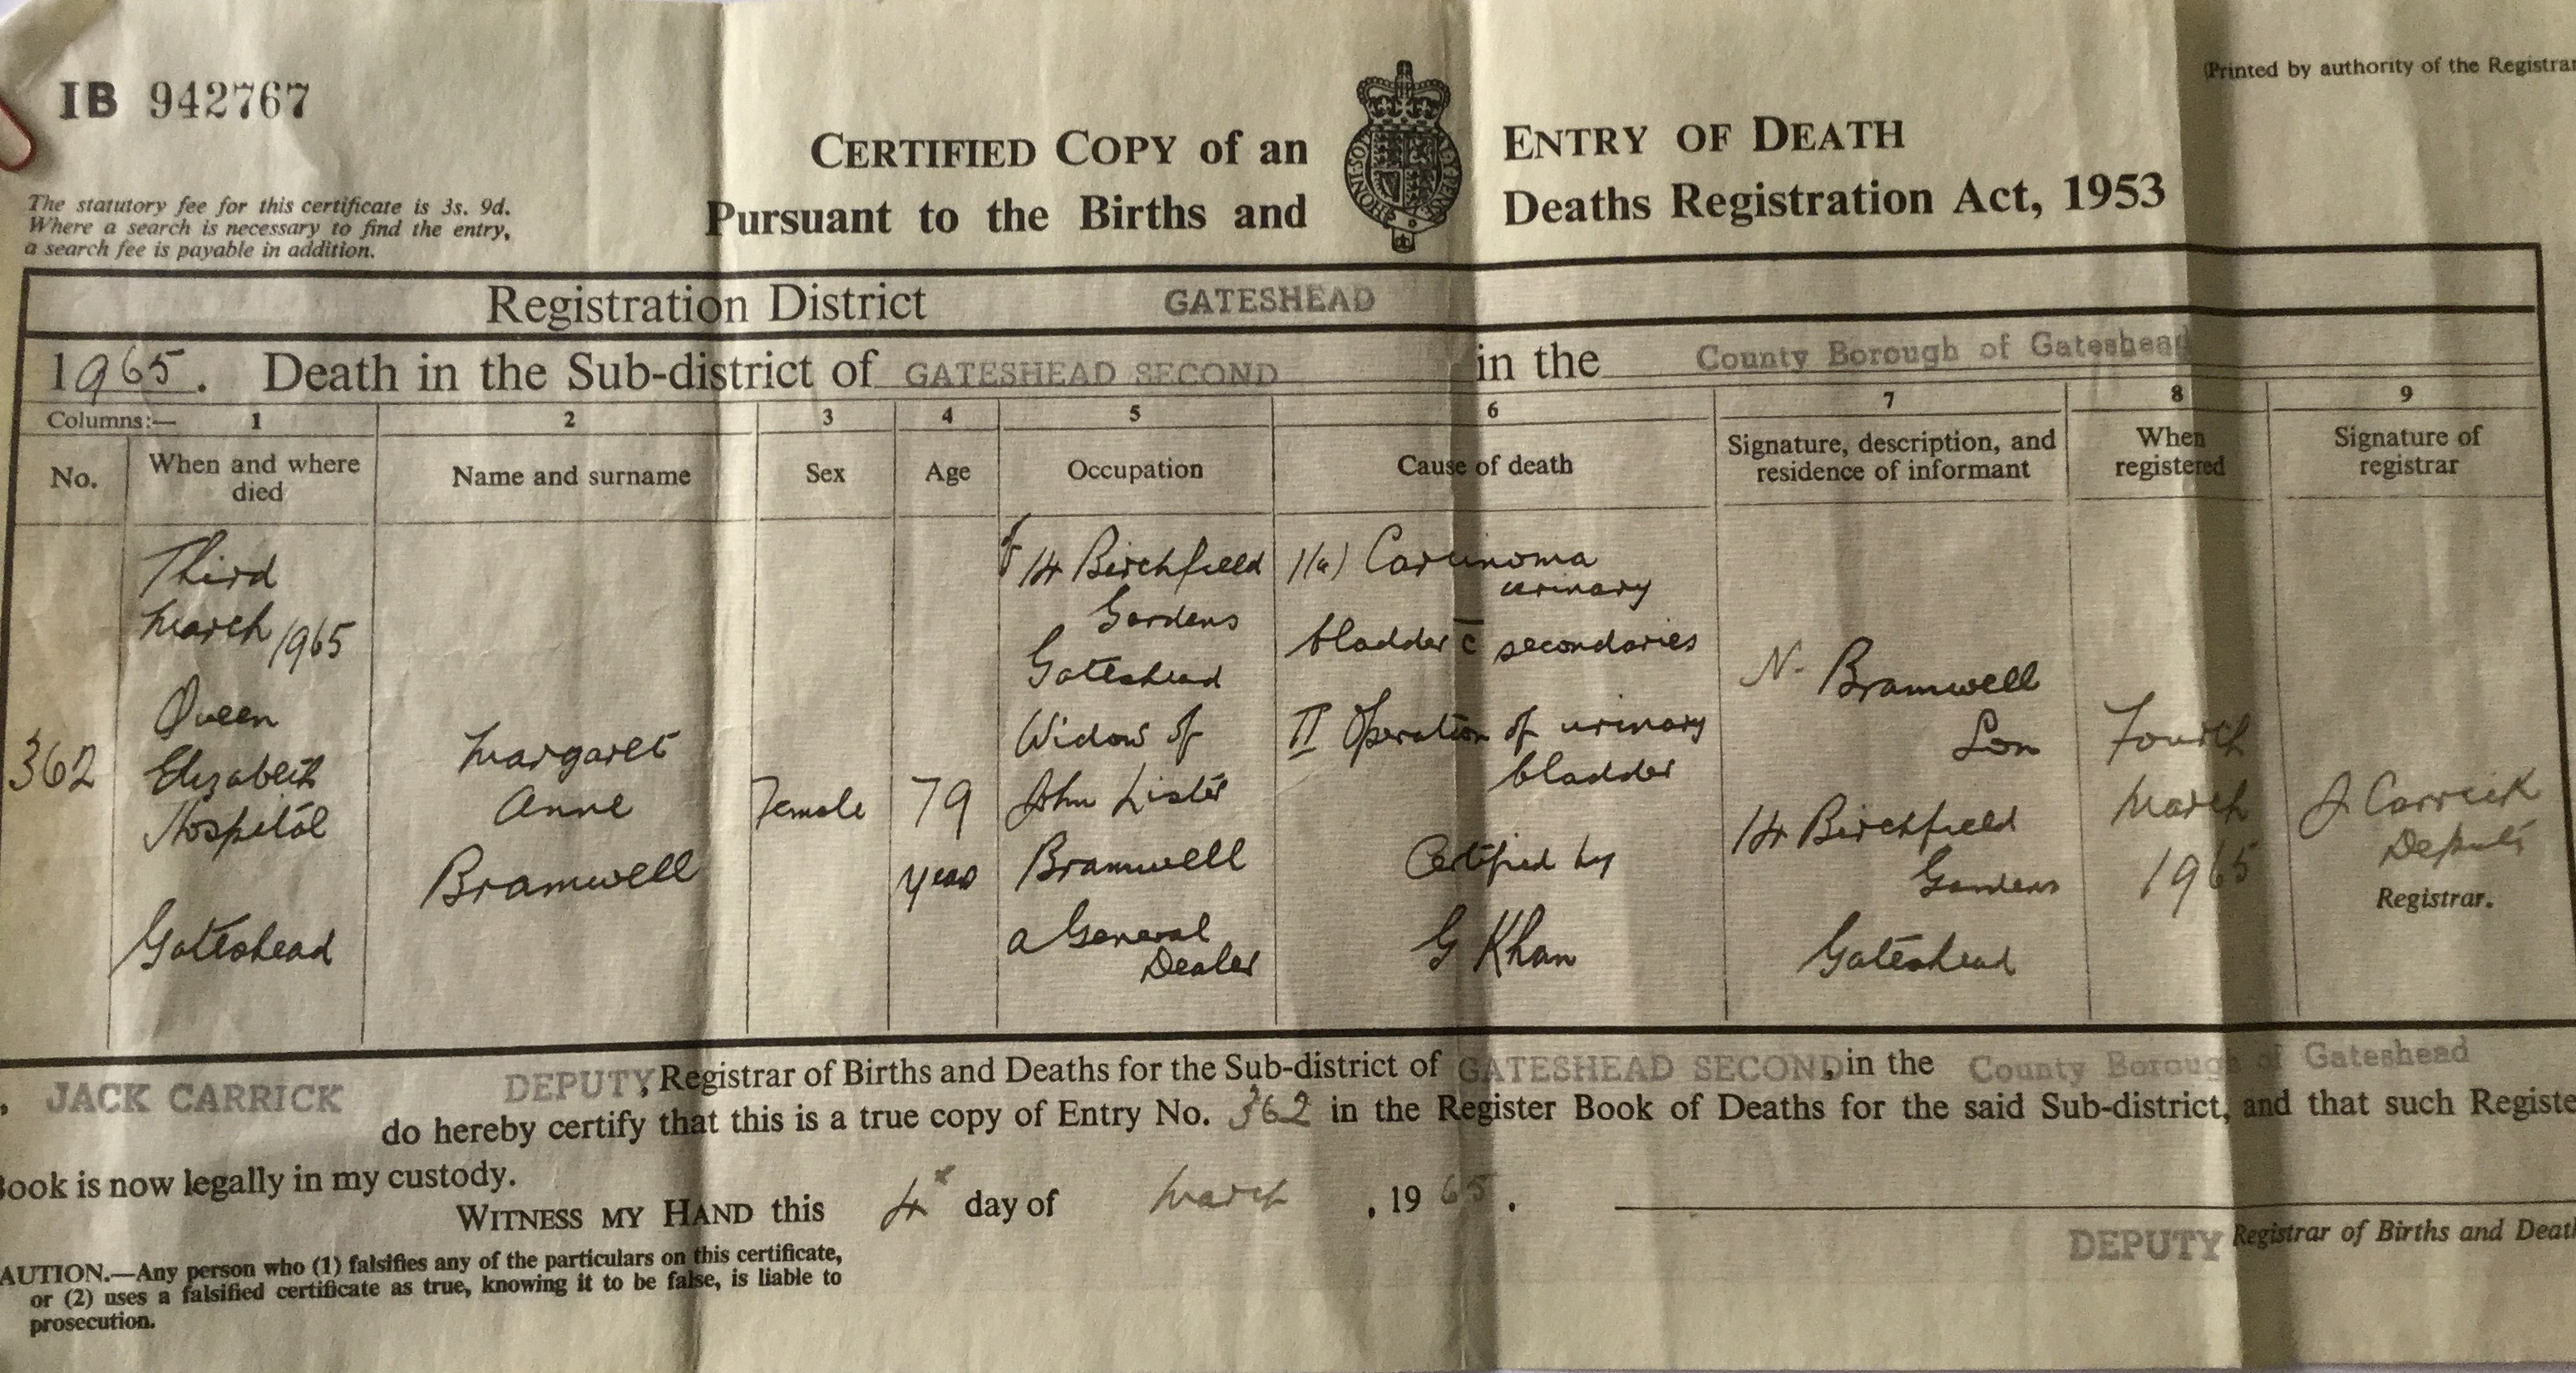 IB 942767
(Printed by authority of the Registrar
CERTIFIED COPY of an ENTRY OF DEATH
Pursuant to the Births and Deaths Registration Act, 1953
The statutory fee for this certificate is 3s. 9d.
Where a search is necessary to find the entry,
a search fee is payable in addition.
Registration District GATESHEAD
1965. Death in the Sub-district of GATESHEAD SECOND in the County Borough of Gateshead
Columns:— 1 2 3 4 5 6 7 8 9
No.
When and where
died
Name and surname
Sex
Age
Occupation
Cause of death
Signature, description, and
residence of informant
When
registered
Signature of
registrar
362
Third
March 1965
Queen
Elizabeth
Hospital
Gateshead
Margaret
Anne
Bramwell
Female
79
years
of 14 Birchfield
Gardens
Gateshead
Widow of
John Lister
Bramwell
a General
Dealer
1(a) Carcinoma
urinary
bladder c̄ secondaries
II Operation of urinary
bladder
Certified by
G Khan
N. Bramwell
Son
14 Birchfield
Gardens
Gateshead
Fourth
March
1965
J. Carrick
Deputy
Registrar.
, JACK CARRICK DEPUTY, Registrar of Births and Deaths for the Sub-district of GATESHEAD SECOND, in the County Borough of Gateshead
do hereby certify that this is a true copy of Entry No. 362 in the Register Book of Deaths for the said Sub-district, and that such Registe
Book is now legally in my custody.
WITNESS MY HAND this 4th day of March, 1965.
DEPUTY Registrar of Births and Death
AUTION.—Any person who (1) falsifies any of the particulars on this certificate,
or (2) uses a falsified certificate as true, knowing it to be false, is liable to
prosecution.